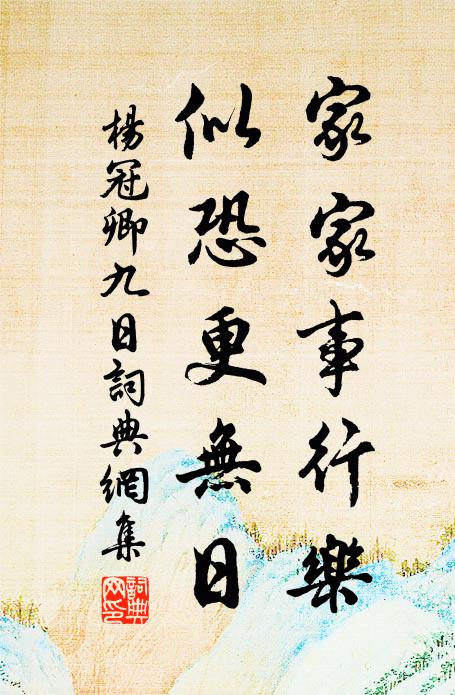 家家事行樂
似恐更無日
楊冠卿九日詞典網集
詞典网印